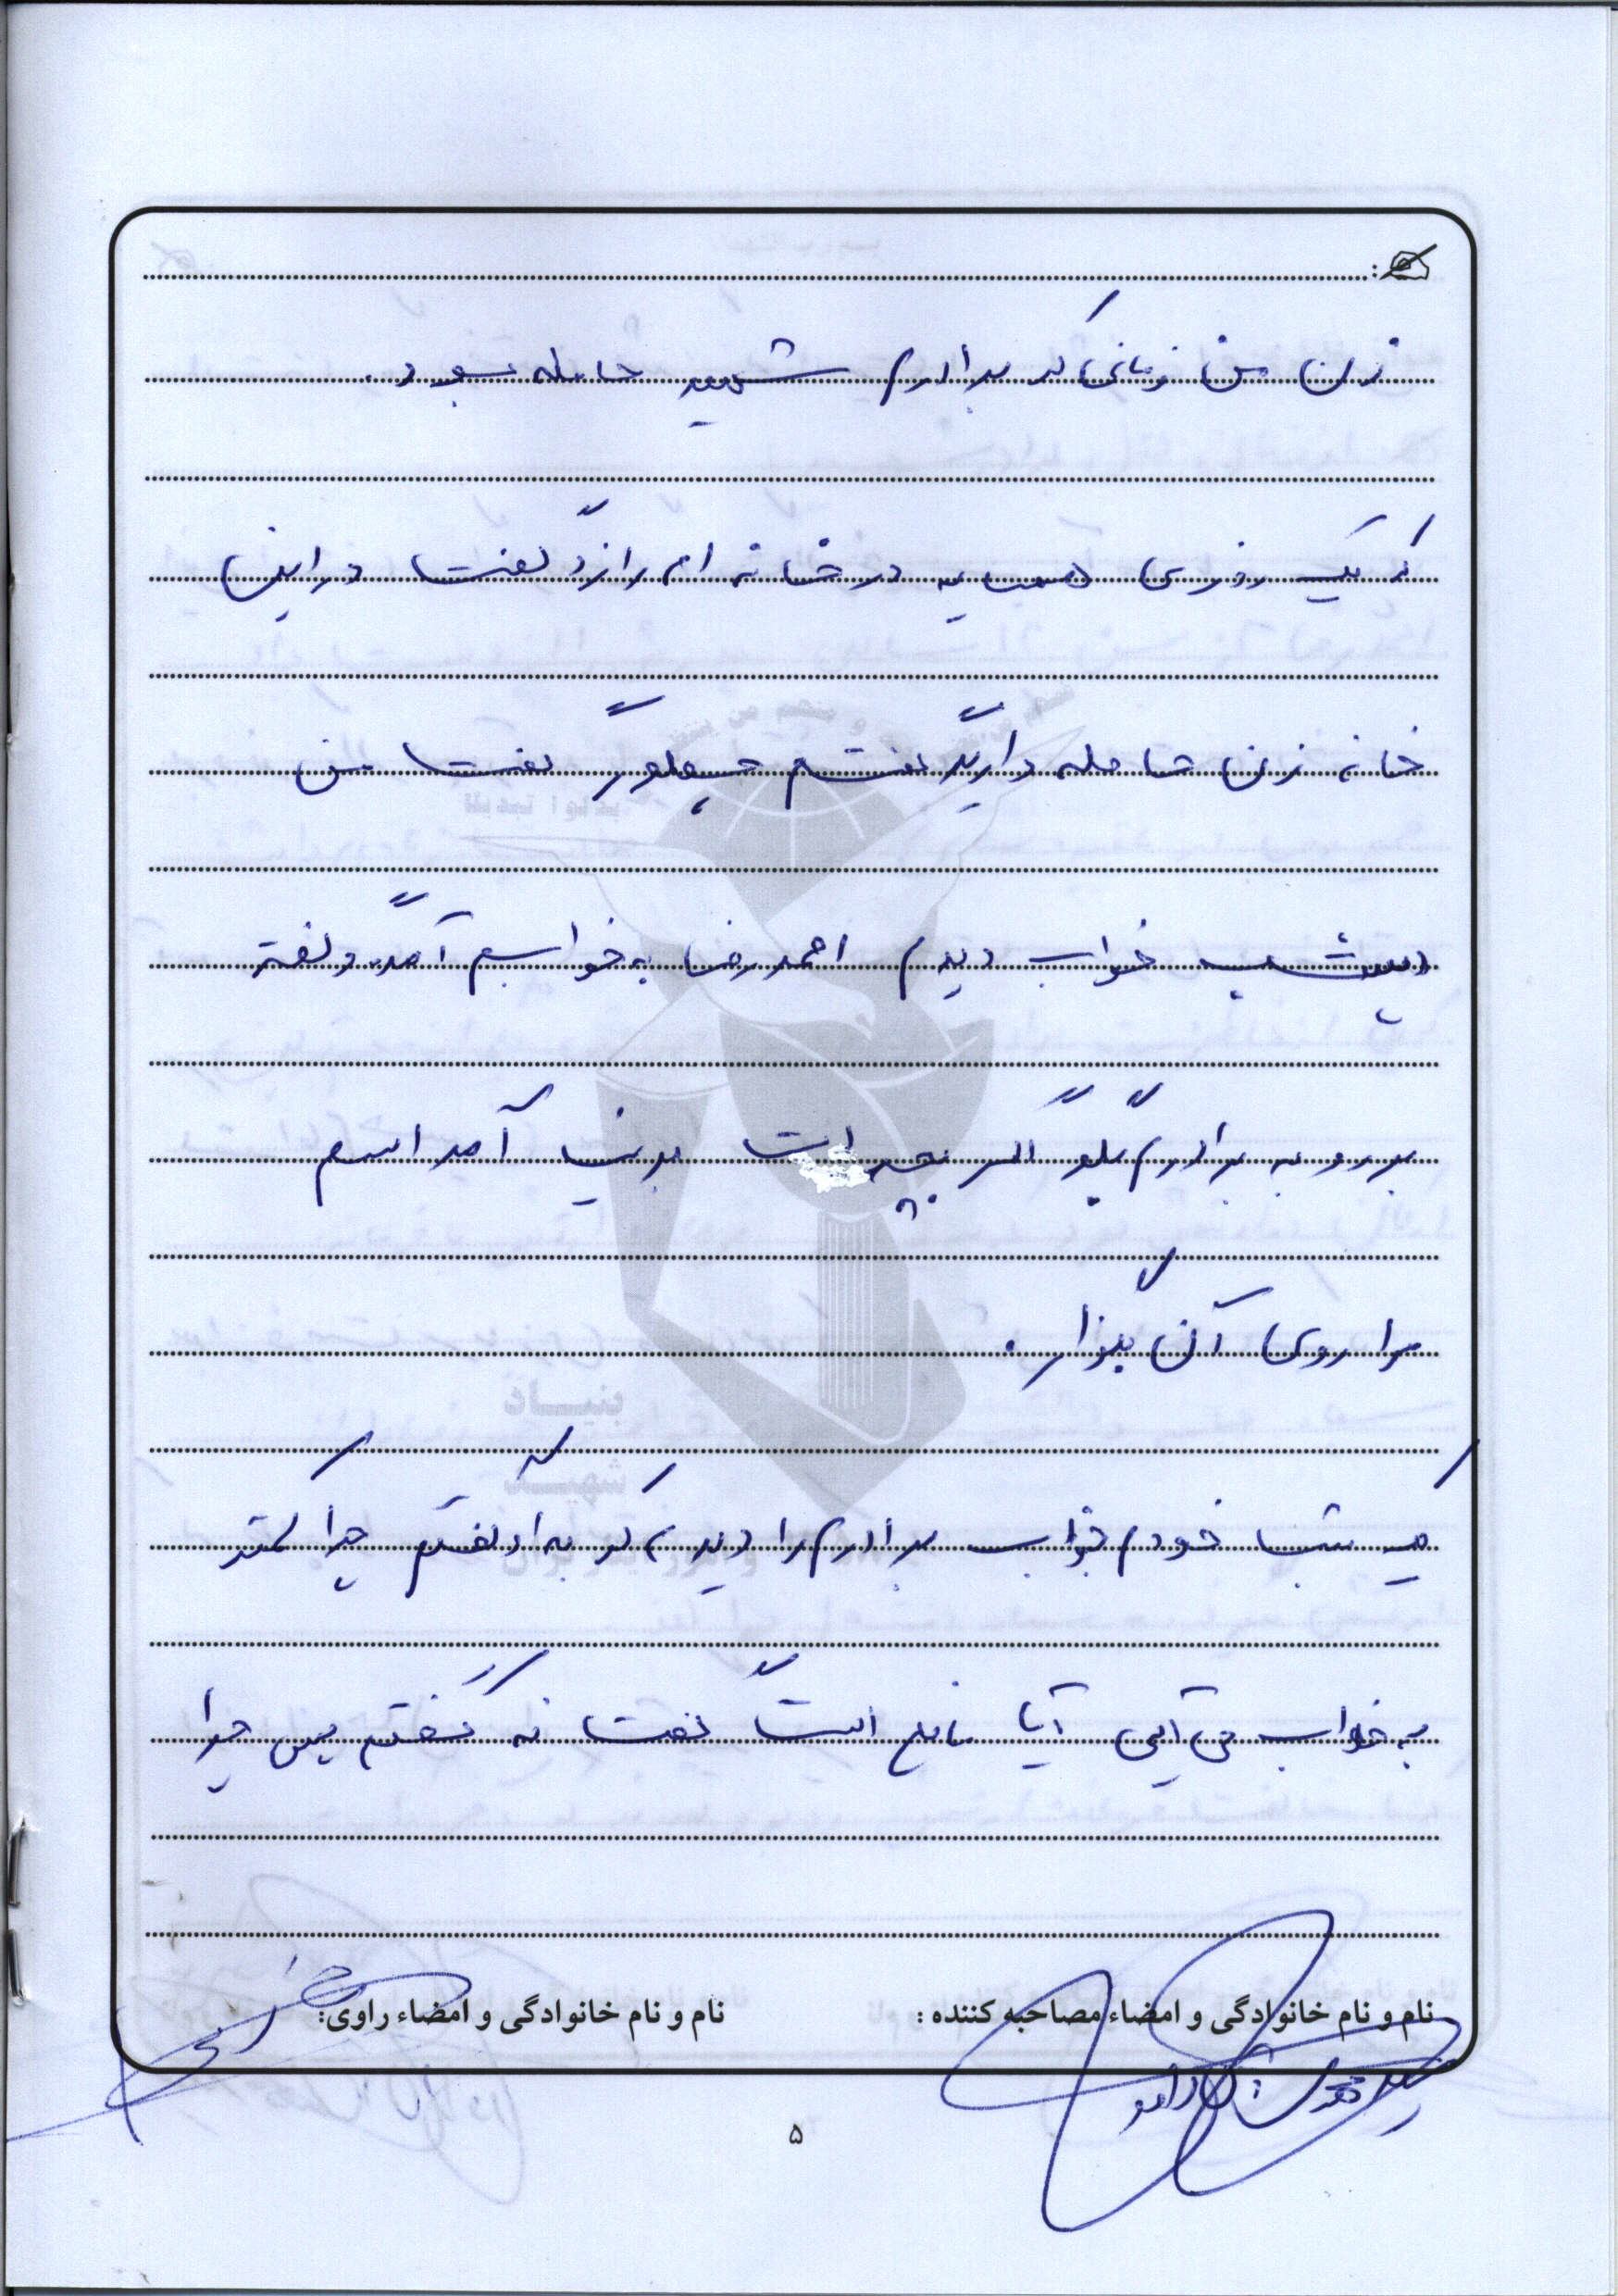 زن من زمانی که برادرم شهید حامله بود.
که یک روزی همسایه در خانه ام را زد گفت در این
خانه زن حامله دارید گفتم چطور گفت من
دیشب خواب دیدم احمدرضا به خوابم آمد و گفته
برو به برادرم بگو اگر بچه ات بدنیا آمد اسم
مرا روی آن بگذار.
یک شب خودم خواب برادرم را دیدم که به او گفتم چرا کمتر
به خواب می آیی آیا مانع است گفت نه گفتم پس چرا
نام و نام خانوادگی و امضاء مصاحبه کننده :
نام و نام خانوادگی و امضاء راوی:
۵